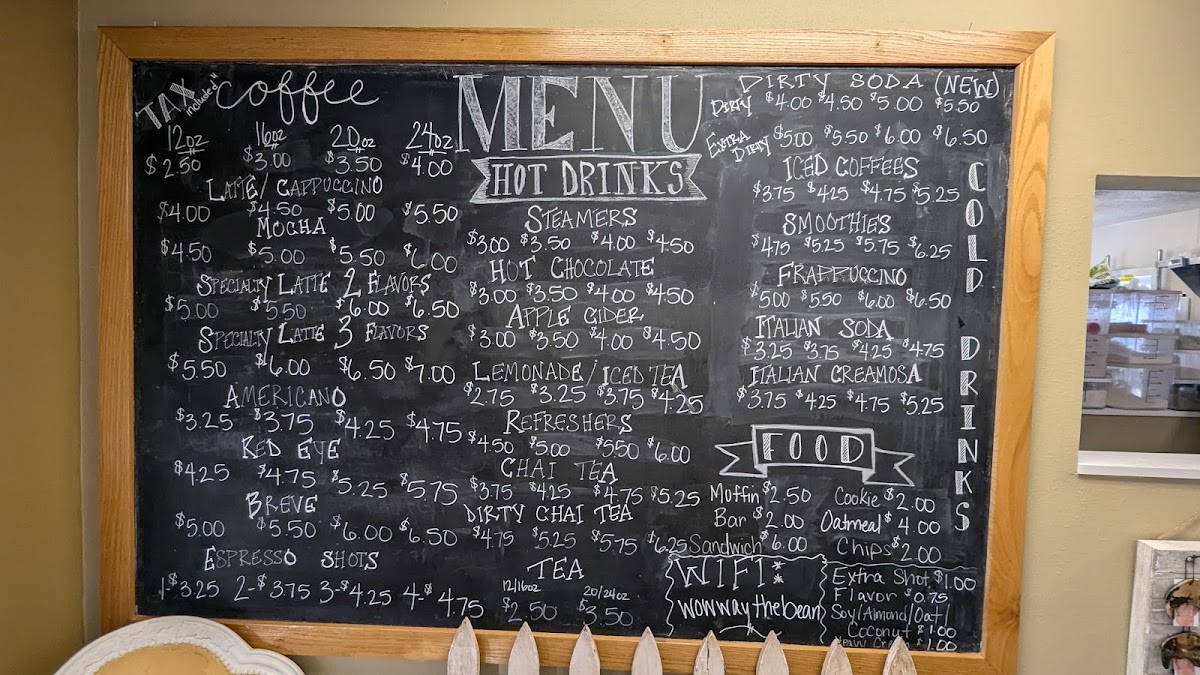 TAX included
coffee
12oz 16oz 20oz 24oz
$2.50 $3.00 $3.50 $4.00
LATTE/CAPPUCCINO
$4.00 $4.50 $5.00 $5.50
MOCHA
$4.50 $5.00 $5.50 $6.00
SPECIALTY LATTE 2 FLAVORS
$5.00 $5.50 $6.00 $6.50
SPECIALTY LATTE 3 FLAVORS
$5.50 $6.00 $6.50 $7.00
AMERICANO
$3.25 $3.75 $4.25 $4.75
RED EYE
$4.25 $4.75 $5.25 $5.75
BREVE
$5.00 $5.50 $6.00 $6.50
ESPRESSO SHOTS
1-$3.25 2-$3.75 3-$4.25 4-$4.75
MENU
HOT DRINKS
STEAMERS
$3.00 $3.50 $4.00 $4.50
HOT CHOCOLATE
$3.00 $3.50 $4.00 $4.50
APPLE CIDER
$3.00 $3.50 $4.00 $4.50
LEMONADE/ICED TEA
$2.75 $3.25 $3.75 $4.25
REFRESHERS
$4.50 $5.00 $5.50 $6.00
CHAI TEA
$3.75 $4.25 $4.75 $5.25
DIRTY CHAI TEA
$4.75 $5.25 $5.75 $6.25
TEA
12/16oz 20/24oz
$2.50 $3.50
DIRTY SODA (NEW)
DIRTY $4.00 $4.50 $5.00 $5.50
EXTRA DIRTY $5.00 $5.50 $6.00 $6.50
COLD DRINKS
ICED COFFEES
$3.75 $4.25 $4.75 $5.25
SMOOTHIES
$4.75 $5.25 $5.75 $6.25
FRAPPUCCINO
$5.00 $5.50 $6.00 $6.50
ITALIAN SODA
$3.25 $3.75 $4.25 $4.75
ITALIAN CREAMOSA
$3.75 $4.25 $4.75 $5.25
FOOD
Muffin $2.50 Cookie $2.00
Bar $2.00 Oatmeal $4.00
Sandwich $6.00 Chips $2.00
WIFI:
wowwaythebean
Extra Shot $1.00
Flavor $0.75
Soy/Almond/Oat/
Coconut $1.00
Heavy Cream $1.00